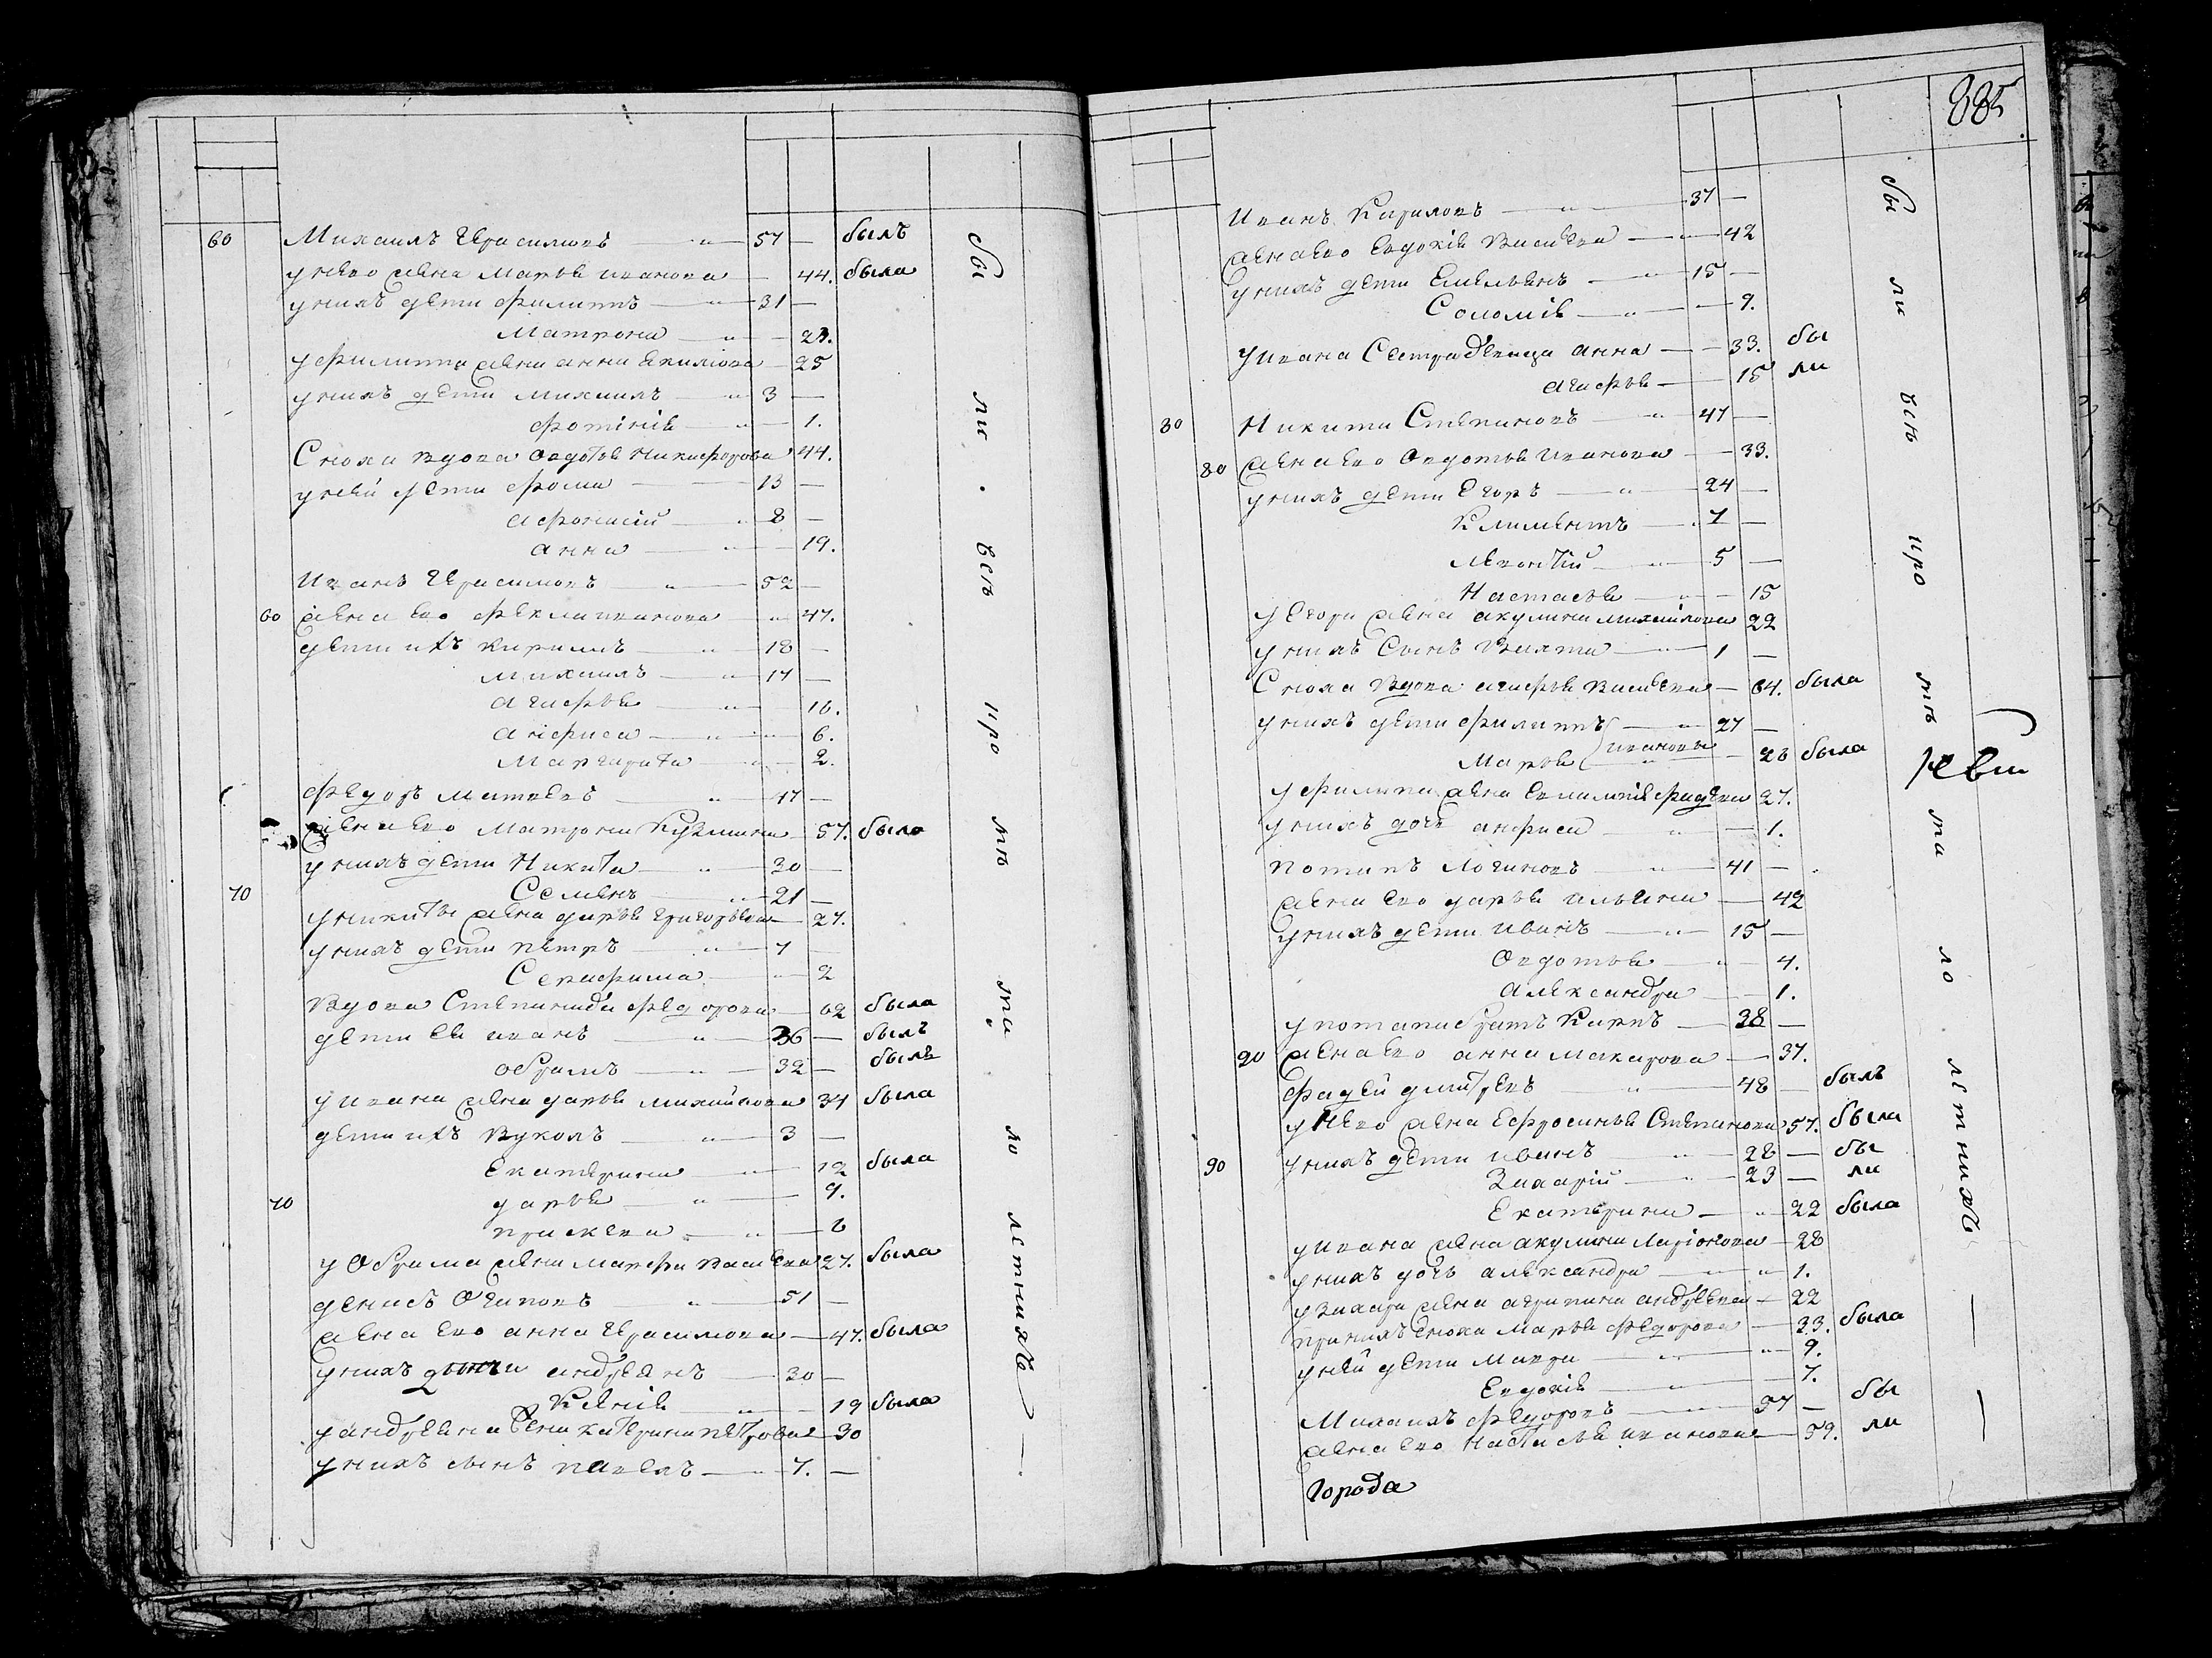 60 Михаилъ Герасимовъ 57 — былъ
у нево жена Марья иванова — 44. была
у нихъ дети Филиппъ 31 —
Матрона — 23.
у Филиппа жена анна Екимова — 25
у нихъ дети михаилъ 3 —
Фотінія — 1.
Сноха вдова овдотья Никифорова 44.
у ней дети Фома 13 —
афонасий 8 —
анна — 19.
Иванъ Герасимовъ 52 —
60 жена ево Фекла иванова — 47.
дети ихъ кирилъ 18 —
михаилъ 17 —
агафья 10.
анфиса — 6.
Маргарита — 2.
Федоръ Матвевъ 47 —
жена ево Матрона Кузмина — 57. была
у нихъ дети Никита 30 —
70 Семенъ 21 —
у никиты жена дарья григорьева — 27.
у нихъ дети петръ 7 —
Серафима — 2
Вдова Степанида Федорова — 62 была
дети ея иванъ 36 — былъ
обрамъ 32 — былъ
у ивана жена дарья михайлова 34 была
дети ихъ Вуколъ 3 —
Екатерина — 12 была
70 дарья — 9.
прасковя — 6
у Обрама жена марфа васильева 27. была
денисъ Огаповъ 51 —
жена ево анна Герасимова — 47. была
у нихъ дети андреянъ 30 —
Ксенія — 19 была
у андреяна жена катерина петрова — 30
у нихъ сынъ павелъ 7. —
бы ли . всѣ и про мѣ та . ло летнихъ
885
Иванъ Кириловъ 37 —
жена ево Евдокія Васильева — 42
у нихъ дети Емельянъ 15 —
Соломія — 9.
у ивана Сестра девица анна — 33. бы
агафья — 15 ли
80 Никита Степановъ 47 —
80 жена ево Овдотья иванова — 33.
у нихъ дети Егоръ 24 —
Климентъ 7 —
леонтій 5 —
Настасья — 15
у Егора жена акулина михайлова 22
у нихъ Сынъ 1 —
Сноха вдова агафья васильева — 64. была
у нихъ дети филиппъ 27 —
Марья ивановы — 26 была
у филипа жена фадеева 27.
у нихъ дочь анфиса — 1.
потапъ логиновъ 41 —
жена ево дарья ильина — 42
у нихъ дети иванъ 15 —
Овдотья — 4.
александра — 1.
у потапа братъ Карпъ 38 —
90 жена ево анна макарова — 37.
фадей дмитревъ 48 — былъ
у Нево жена Ефросинья Степанова 57. была
90 у нихъ дети иванъ 28 — бы
Захарій 23 — ли
Екатерина — 22 была
у ивана жена акулина Ларіонова — 28
у нихъ дочь александра — 1.
у захара жена агрипина андреева — 22
при нихъ сноха Марья федорова — 33. была
у ней дети Мавра — 9.
Евдокія — 7.
Михаилъ Федоровъ 57 — бы
жена ево настасья иванова — 59. ли
города
бы ли всѣ и про мѣ та ло летнихъ